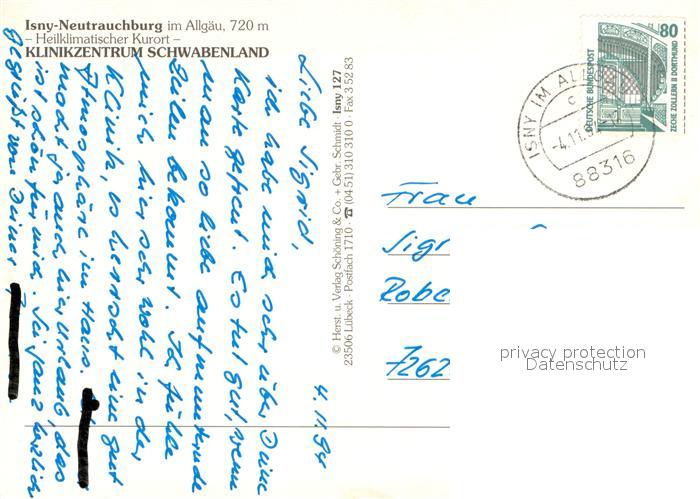 Isny-Neutrauchburg im Allgäu, 720 m
– Heilklimatischer Kurort –
KLINIKZENTRUM SCHWABENLAND
4.11.94
Liebe Sigrid,
ich habe mich sehr über Deine
Karte gefreut. Es tut gut, wenn
man so liebe aufmunternde
Zeilen bekommt. Ich fühle
mich hier sehr wohl in der
Klinik, es herrscht eine gute
Atmosphäre im Haus.
macht ja auch hier Urlaub, das
ist schön für mich. Sei ganz herzlich
gegrüßt von Deiner
© Herst. u. Verlag Schöning & Co. + Gebr. Schmidt · Isny 127
23506 Lübeck · Postfach 1710 · ☎ (04 51) 310 310 0 · Fax 3 52 83
DEUTSCHE BUNDESPOST
80
ZECHE ZOLLERN II DORTMUND
ISNY IM ALL
c
-4.11.9
88316
Frau
Sigr
Robe
7262
privacy protection
Datenschutz